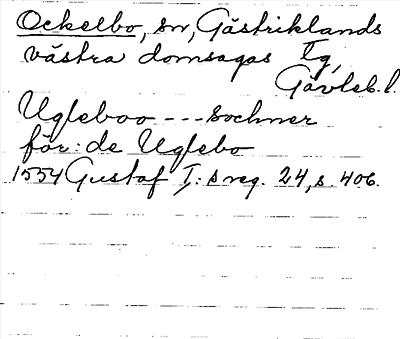 Ockelbo, sn, Gästriklands
västra domsagas tg,
Gävleb. l.
Ugleboo --- sochner
för: de Uglebo
1554 Gustaf I: s reg. 24, s. 406.